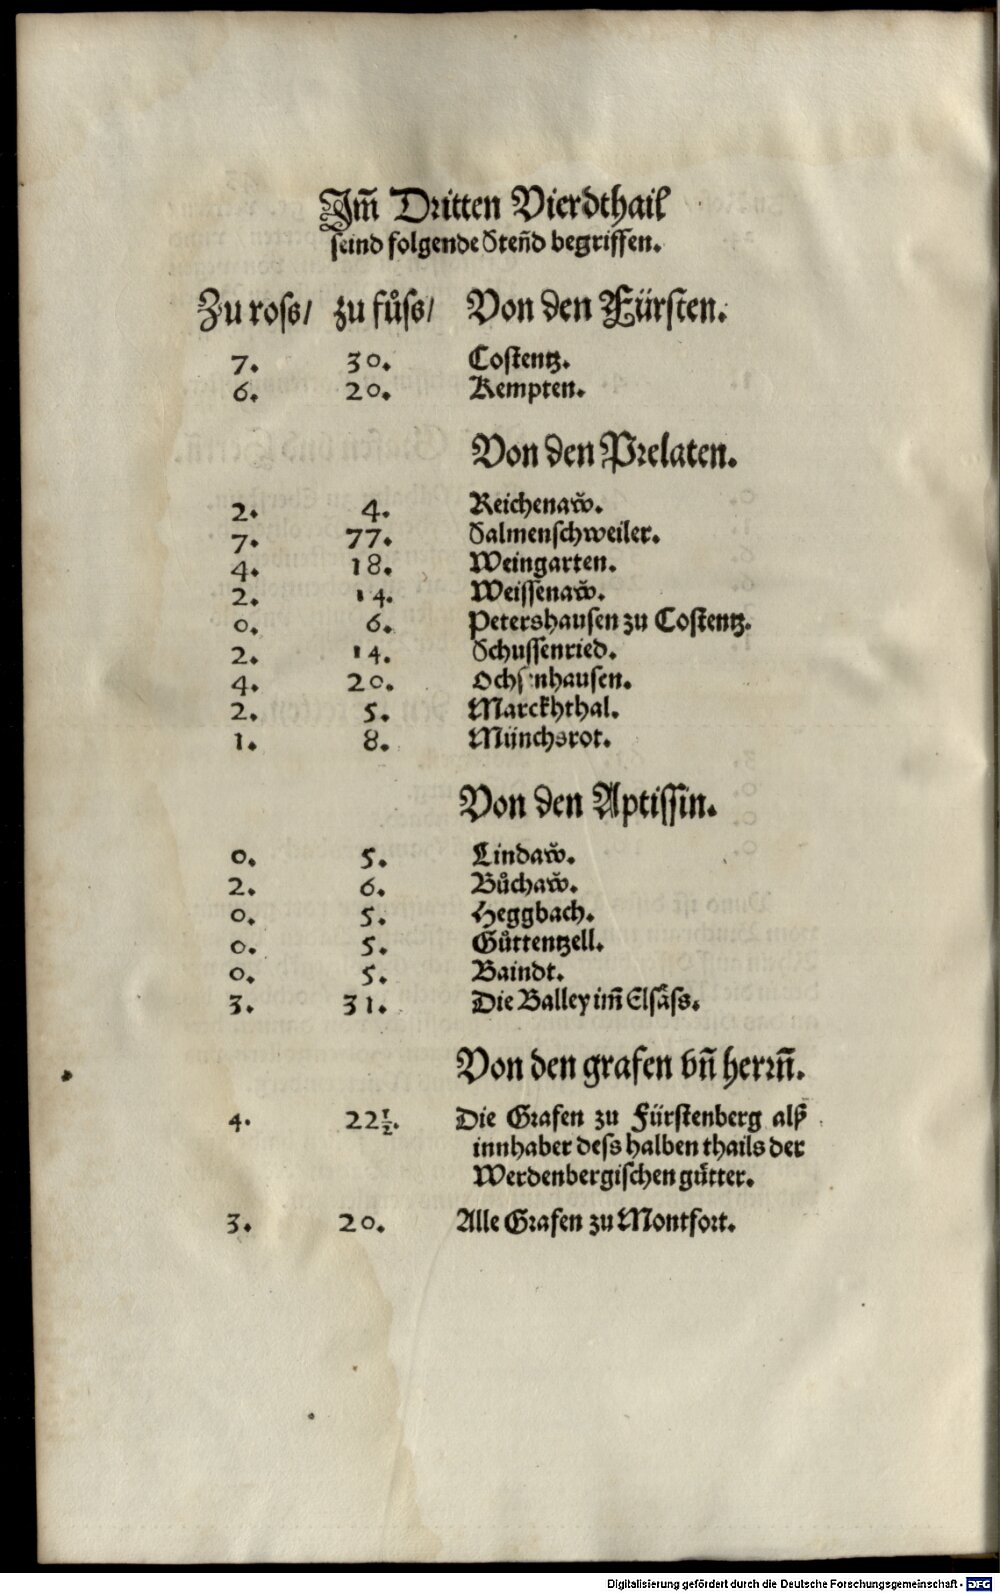 Im̃ Dritten Vierdthail
seind folgende Steñd begriffen.
Zu ross/ zu fůss/ Von den Fürsten.
7. 30. Costentz.
6. 20. Kempten.
Von den Prelaten.
2. 4. Reichenaw̃.
7. 77. Salmenschweiler.
4. 18. Weingarten.
2. 14. Weissenaw̃.
0. 6. Petershausen zu Costentz.
2. 14. Schussenried.
4. 20. Ochsenhausen.
2. 5. Marckhthal.
1. 8. Münchsrot.
Von den Aptissin.
0. 5. Lindaw̃.
2. 6. Bůchaw̃.
0. 5. Heggbach.
0. 5. Gůttentzell.
0. 5. Baindt.
3. 31. Die Balley im̃ Elsäss.
Von den grafen vñ herrñ.
4. 22½. Die Grafen zu Fürstenberg alß
innhaber dess halben thails der
Werdenbergischen gütter.
3. 20. Alle Grafen zu Montfort.
Digitalisierung gefördert durch die Deutsche Forschungsgemeinschaft - DFG